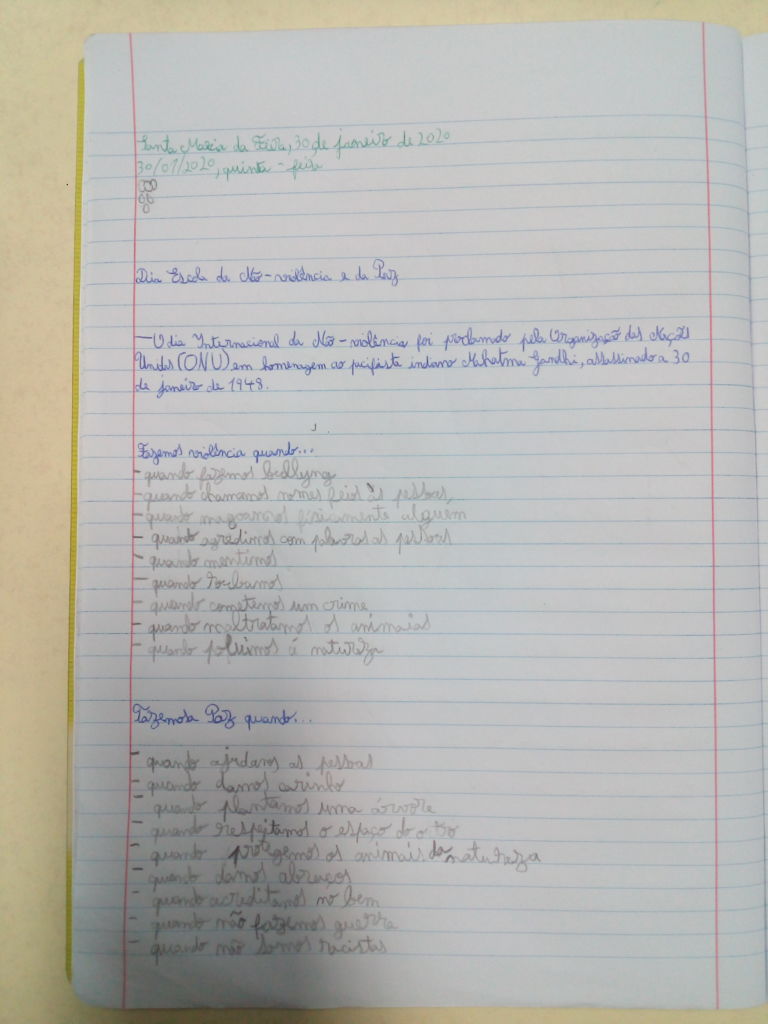 Santa Maria da Feira, 30 de janeiro de 2020
30/01/2020, quinta-feira
Dia Escola da Não-violência e da Paz
— O dia Internacional da Não-violência foi proclamdo pela Organização das Nações
Unidas (ONU) em homenagem ao pacifista indiano Mahatma Gandhi, assassinado a 30
de janeiro de 1948.
Fazemos violência quando...
- quando fazemos bullyng
- quando chamamos nomes feios às pessoas,
- quando magoamos fisicamente alguem
- quando agredimos com palavras as pessoas
- quando mentimos
- quando roubamos
- quando cometemos um crime
- quando maltratamos os animais
- quando poluimos á natureza
Fazemosa Paz quando...
- quando ajudamos as pessoas
- quando damos carinho
- quando plantamos uma árvore
- quando respeitamos o espaço do outro
- quando protegemos os animais da natureza
- quando damos abraços
- quando acreditamos no bem
- quando não fazemos guerra
- quando não somos racistas